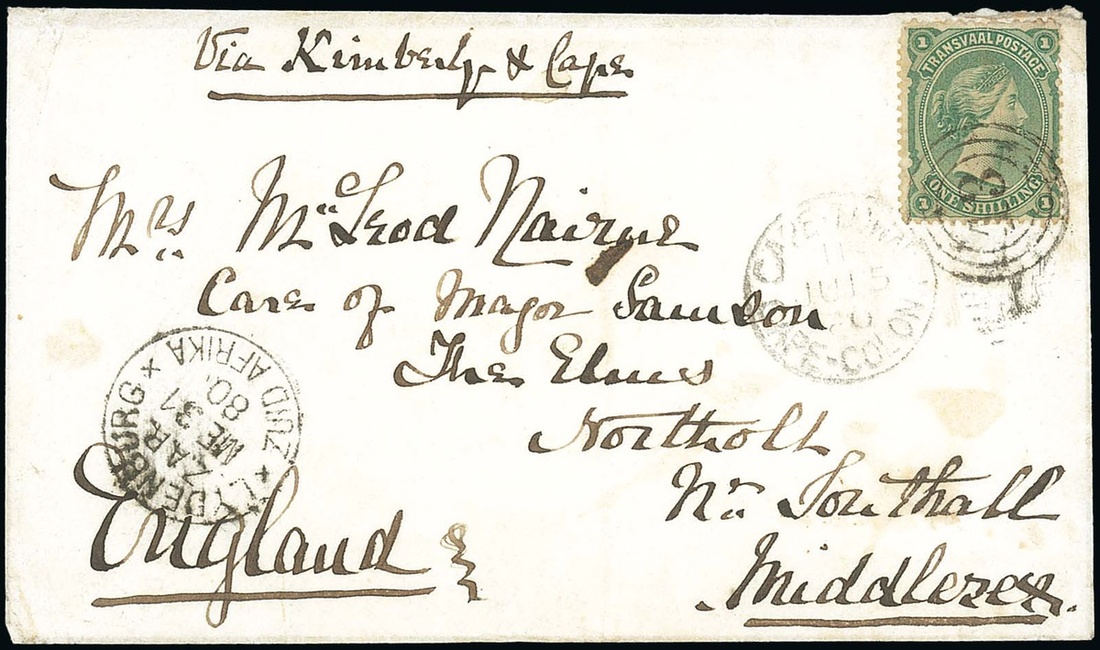 Via Kimberly & Cape
1 TRANSVAAL POSTAGE 1
1 ONE SHILLING 1
Mrs. McLeod Nairne
Care of Major Samson
The Elms
Northolt
Nr. Southall
Middlesex.
England
CAPE-COLON
JU 15
LYDENBURG × ZUID AFRIKA ×
ZAR
MEI 31
80.